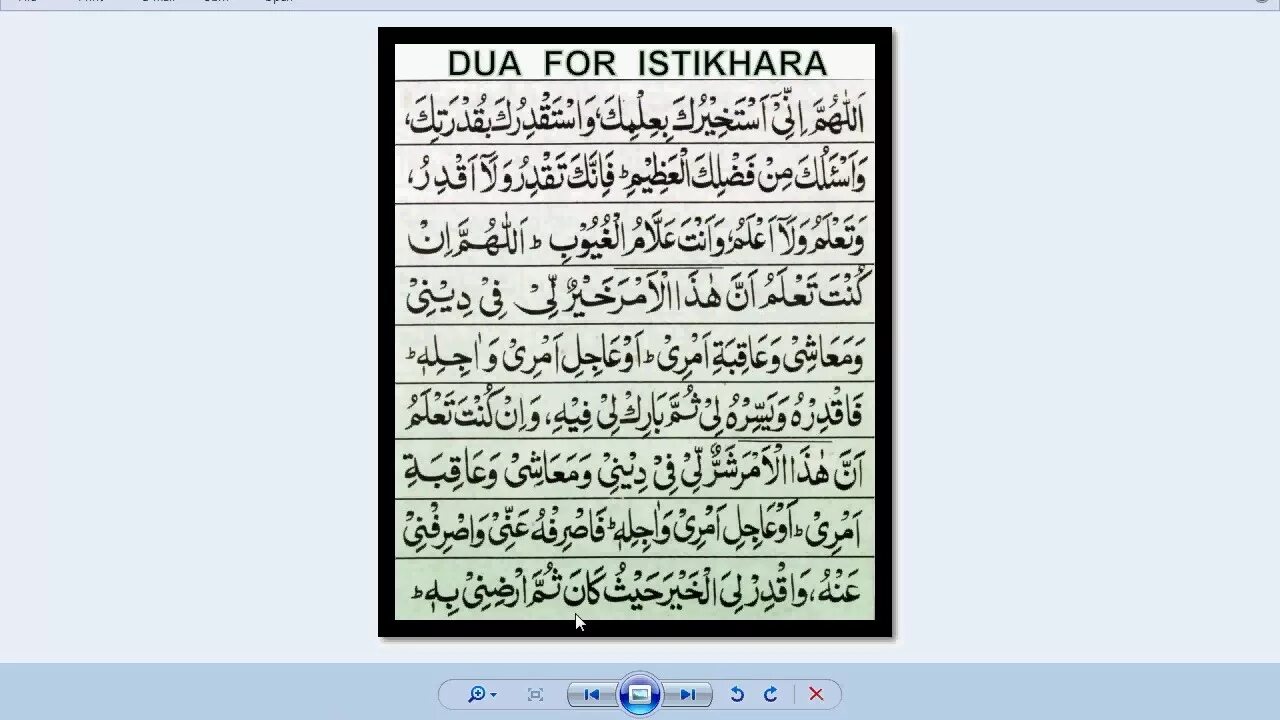 DUA FOR ISTIKHARA
اَللّٰهُمَّ اِنِّیْۤ اَسْتَخِیْرُكَ بِعِلْمِكَ، وَاسْتَقْدِرُكَ بِقُدْرَتِكَ،
وَاَسْئَلُكَ مِنْ فَضْلِكَ الْعَظِیْمِ ؕ فَاِنَّكَ تَقْدِرُ وَلَاۤ اَقْدِرُ،
وَتَعْلَمُ وَلَاۤ اَعْلَمُ، وَاَنْتَ عَلَّامُ الْغُیُوْبِ ؕ اَللّٰهُمَّ اِنْ
كُنْتَ تَعْلَمُ اَنَّ هٰذَا الْاَمْرَ خَیْرٌ لِّیْ فِیْ دِیْنِیْ
وَمَعَاشِیْ وَعَاقِبَةِ اَمْرِیْ ؕ اَوْ عَاجِلِ اَمْرِیْ وَاٰجِلِهٖ ؕ
فَاقْدِرْهُ وَیَسِّرْهُ لِیْ ثُمَّ بَارِكْ لِیْ فِیْهِ، وَاِنْ كُنْتَ تَعْلَمُ
اَنَّ هٰذَا الْاَمْرَ شَرٌّ لِّیْ فِیْ دِیْنِیْ وَمَعَاشِیْ وَعَاقِبَةِ
اَمْرِیْ ؕ اَوْ عَاجِلِ اَمْرِیْ وَاٰجِلِهٖ ؕ فَاصْرِفْهُ عَنِّیْ وَاصْرِفْنِیْ
عَنْهُ، وَاقْدِرْ لِیَ الْخَیْرَ حَیْثُ كَانَ ثُمَّ ارْضِنِیْ بِهٖ ؕ